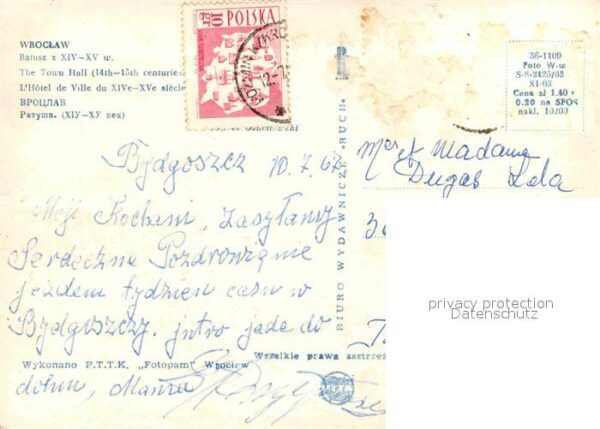 WROCŁAW
Ratusz z XIV-XV w.
The Town Hall (14th-15th centuries)
L'Hôtel de Ville du XIVe-XVe siècle
ВРОЦЛАВ
Ратуша. (XIV-XV век)
10 GR POLSKA
36-1109
Foto W-w
S-8-2425/63
XI-63
Cena zł 1.40 +
0.20 na SFOS
nakł. 10200
Bydgoszcz 10.7.67
Moji Kochani, Zasyłamy
Serdeczne Pozdrowienie
jezdem tydzien casu w
Bydgoszczy. jutro jade do
domu, Mama
Mer et Madame
Dugas Lola
BIURO WYDAWNICZE «RUCH»
Wszelkie prawa zastrzeż
Wykonano P.T.T.K. „Fotopam" Wrocław
privacy protection
Datenschutz